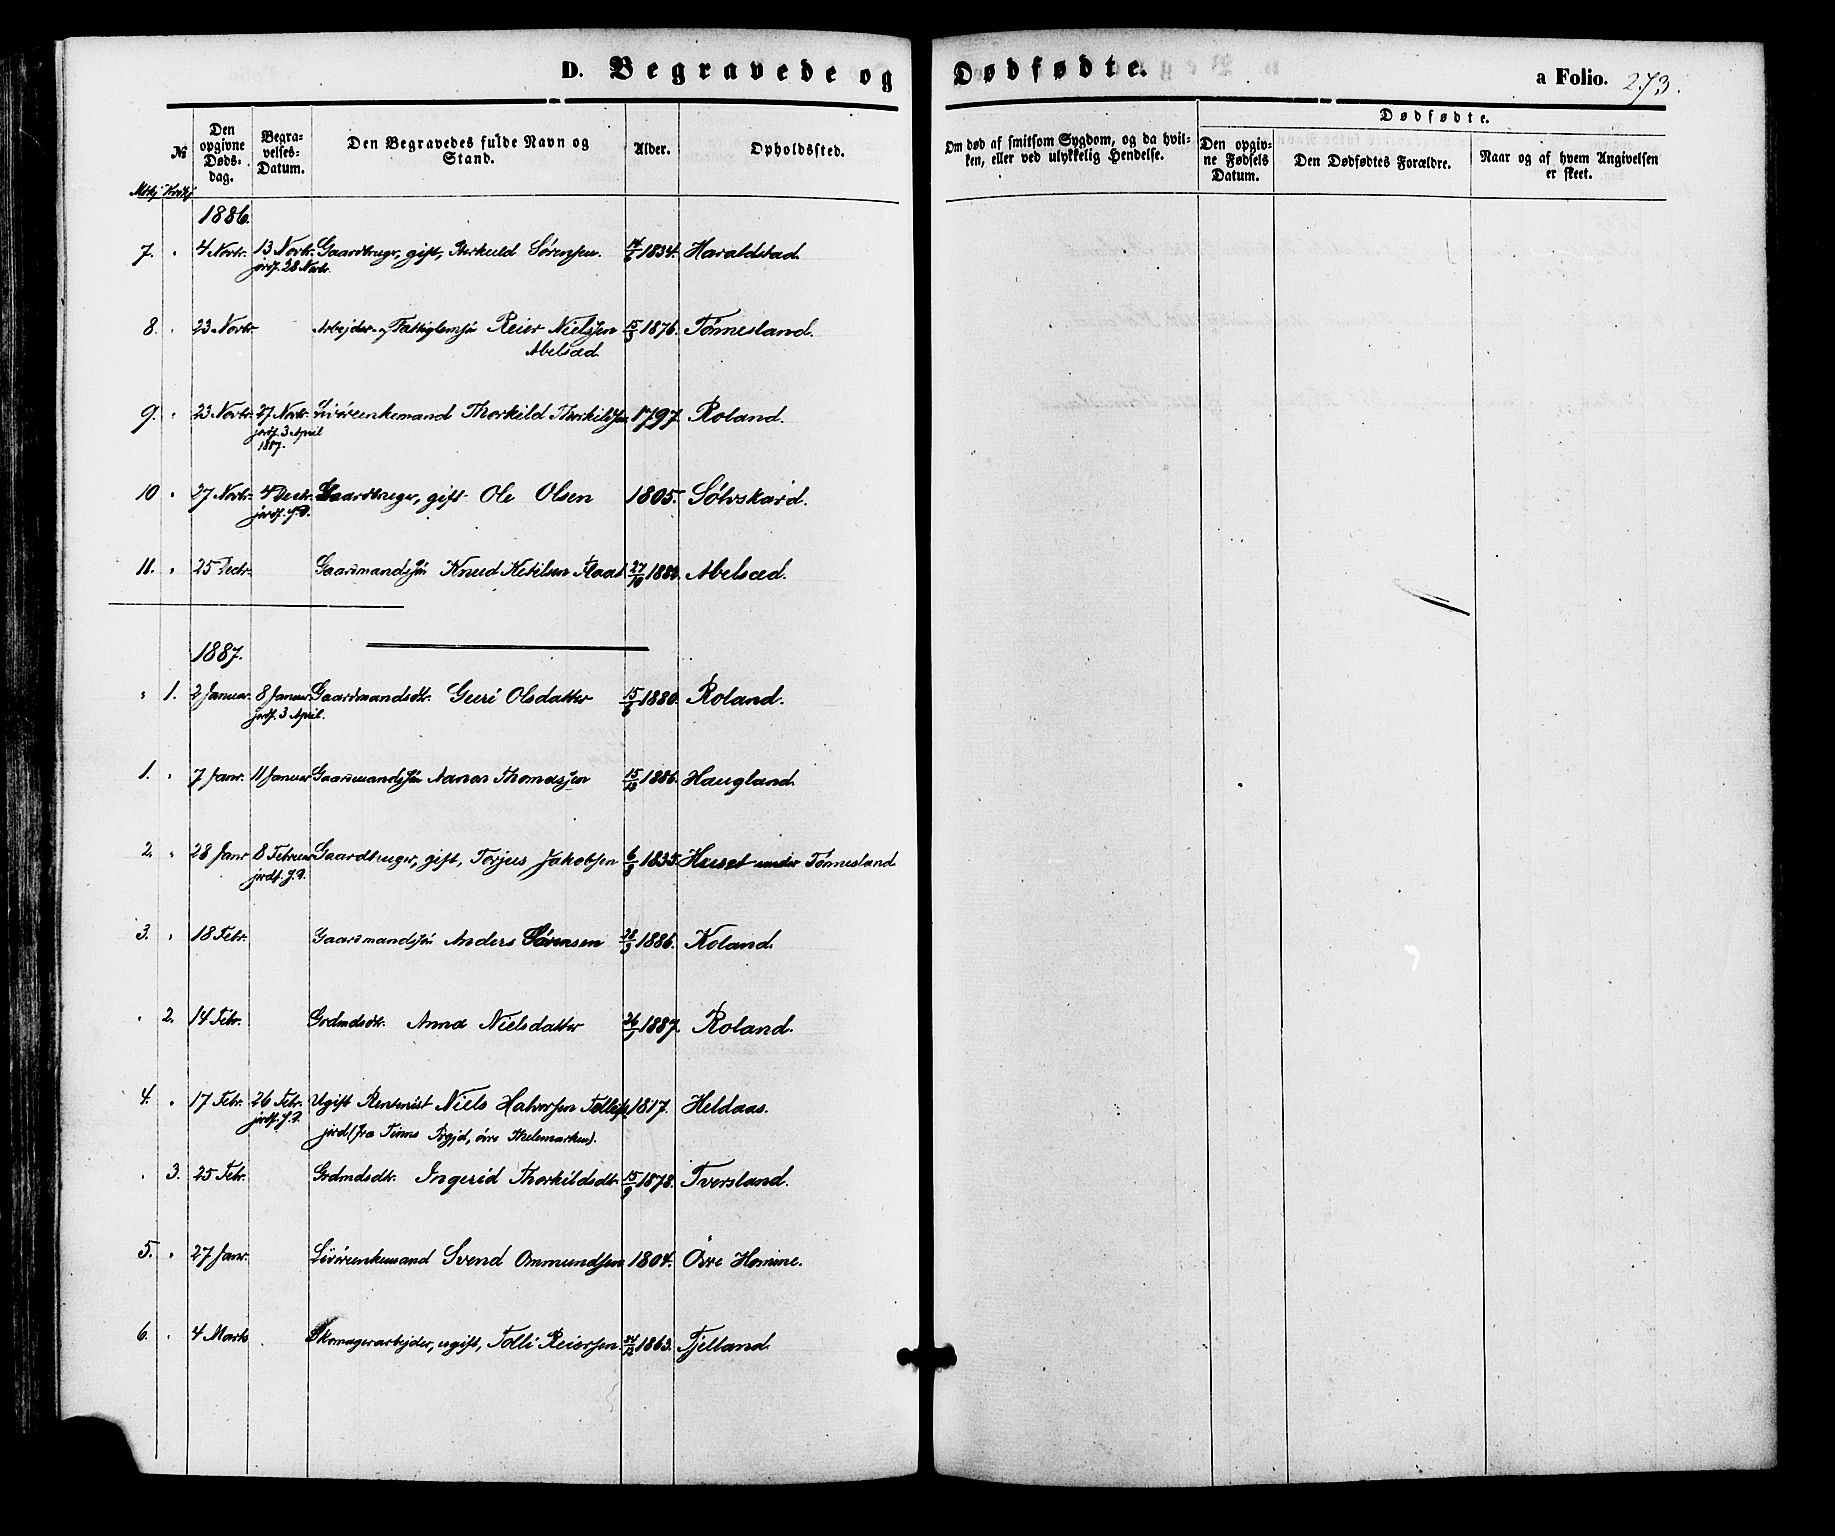 D. Begravede og Dødfødte. a Folio. 273.
№
Mkj Kvkj
Den opgivne Døds-dag.
Begra-velses-Datum.
Den Begravedes fulde Navn og Stand.
Alder.
Opholdssted.
Om død af smitsom Sygdom, og da hvil-ken, eller ved ulykkelig Hendelse.
Dødfødte.
Den opgiv-ne Fødsels Datum.
Den Dødfødtes Forældre.
Naar og af hvem Angivelsen er skeet.
1886.
7. " 4 Novbr. 13 Novbr. Gaardbruger, gift, Sørensen. 14/6 1834. Haraldstad.
jordf. 28 Novbr.
8. " 23 Novbr. Arbejder og Fattiglemssøn Reier Nielssen 15/3 1876. Tønnesland.
Abelsæd.
9. " 23 Novbr. 27 Novbr. Livøreenkemand Thorkild Thorkildssen 1797. Roland.
jordf. 3 April
1887.
10 " 27 Novbr. 4 Decbr. Gaardbruger, gift Ole Olsen 1805. Sølvskard.
jordf. s. D.
11. " 25 Decbr. Gaardmandssøn Knud Ketilsen Flaat 27/10 1880. Abelsæd.
1887.
" 1. 2 Januar. 8 Januar Gaardmandsdtr. Guri Olsdatter 15/6 1880. Roland.
jordf. 3 April.
1. " 7 Janr. 11 Januar Gaardmandssøn Nanas Thomassen 15/12 1886. Haugland.
2. " 28 Janr 8 Februar Gaardbruger, gift, Torjus Jakobsen 6/3 1835. Huset under Tønnesland
jordf. s. D.
3. " 18 Febr. Gaardmandssøn Anders Sørensen 28/3 1886. Koland.
" 2. 14 Febr. Grdmdsdtr. Anna Nielsdatter 26/1 1887. Roland.
4. " 17 Febr. 26 Febr. Ugift Rentenist Niels Halvorsen 1817. Heldaas.
jordf. s. D. jord (fra Tinns Prgjd, øvre Thelemarken).
" 3. 25 Febr. Grdmdsdtr. Ingerid Thorkildsdtr. 15/9 1873. Tversland.
5. " 27 Janr. Livøreenkemand Svend Ommundsen 1804. Øvre Homme.
6. " 4 Marts Skomagerarbejder, ugift, Tolli Reiersen. 24/12 1863. Fjelland.